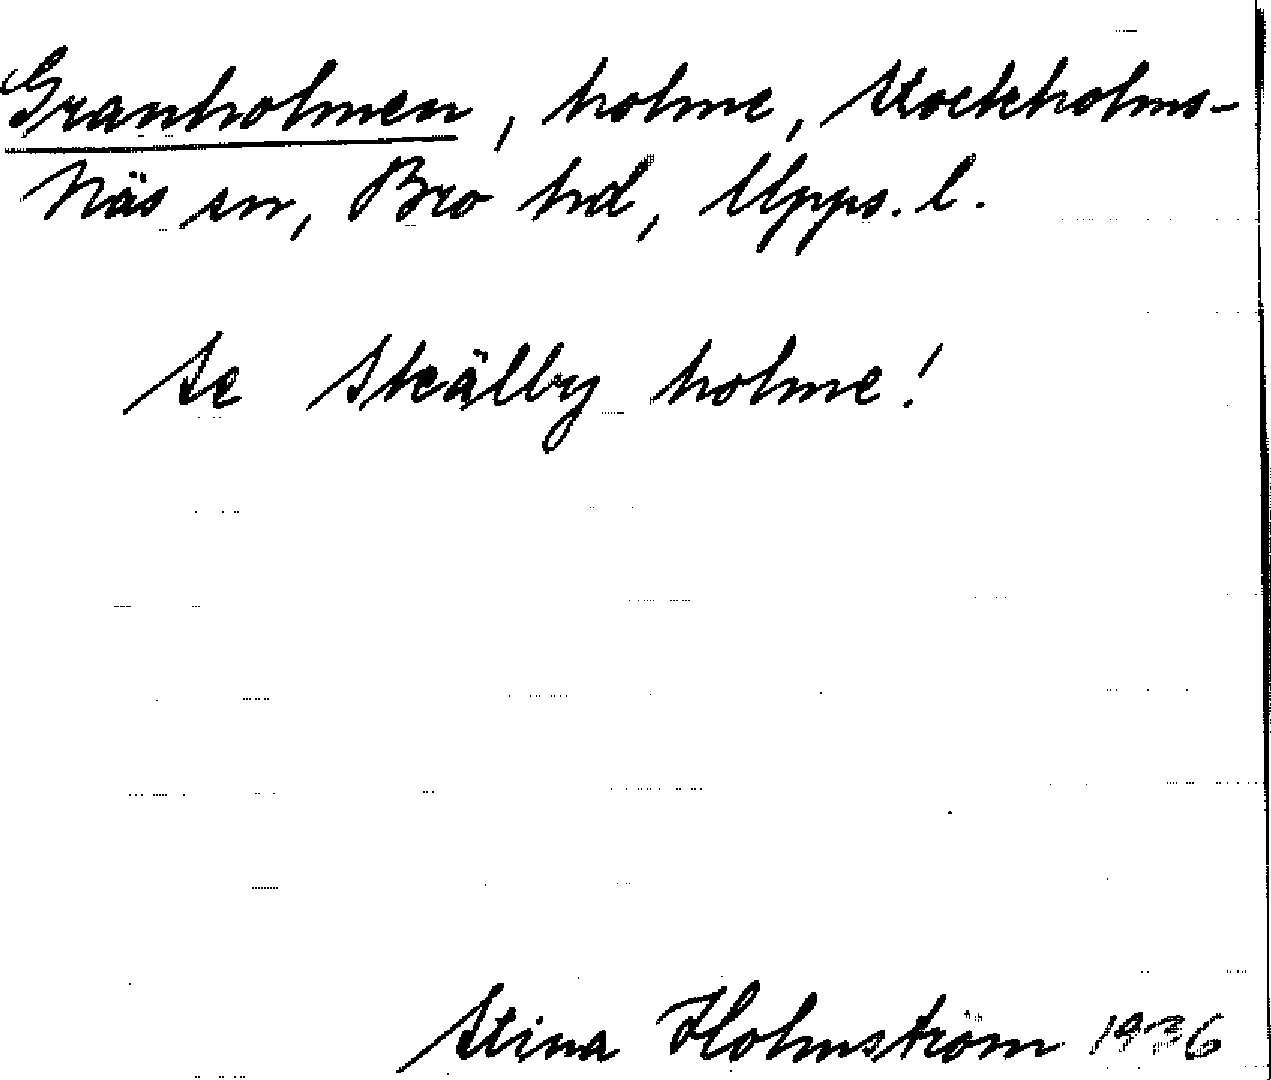 Granholmen, holme, Stockholms-
Näs sn, Bro hd, Upps. l.
Se Skälby holme!
Stina Holmström 1936